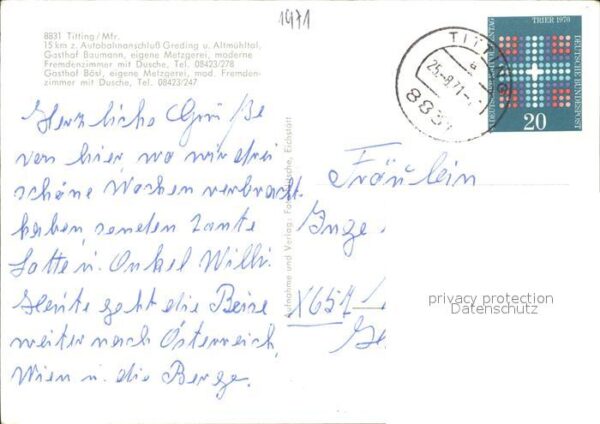 1971
8831 Titting/Mfr.
15 km z. Autobahnanschluß Greding u. Altmühltal,
Gasthof Baumann, eigene Metzgerei, moderne
Fremdenzimmer mit Dusche, Tel. 08423/278
Gasthof Bösl, eigene Metzgerei, mod. Fremden-
zimmer mit Dusche, Tel. 08423/247
TRIER 1970
DEUTSCHE BUNDESPOST
20
TITTING
a
25.-8.71
8831
Herzliche Grüße
von hier wo wir drei
schöne Wochen verbracht
haben, senden Tante
Lotte u. Onkel Willi.
Heute geht die Reise
weiter nach Österreich,
Wien u. die Berge.
Aufnahme und Verlag: Eichstätt
Fräulein
Inge
X6541
Ge
privacy protection
Datenschutz